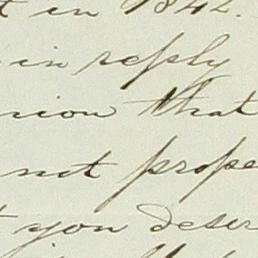 t in 1842.
in reply
nion that
not prope
t you deser